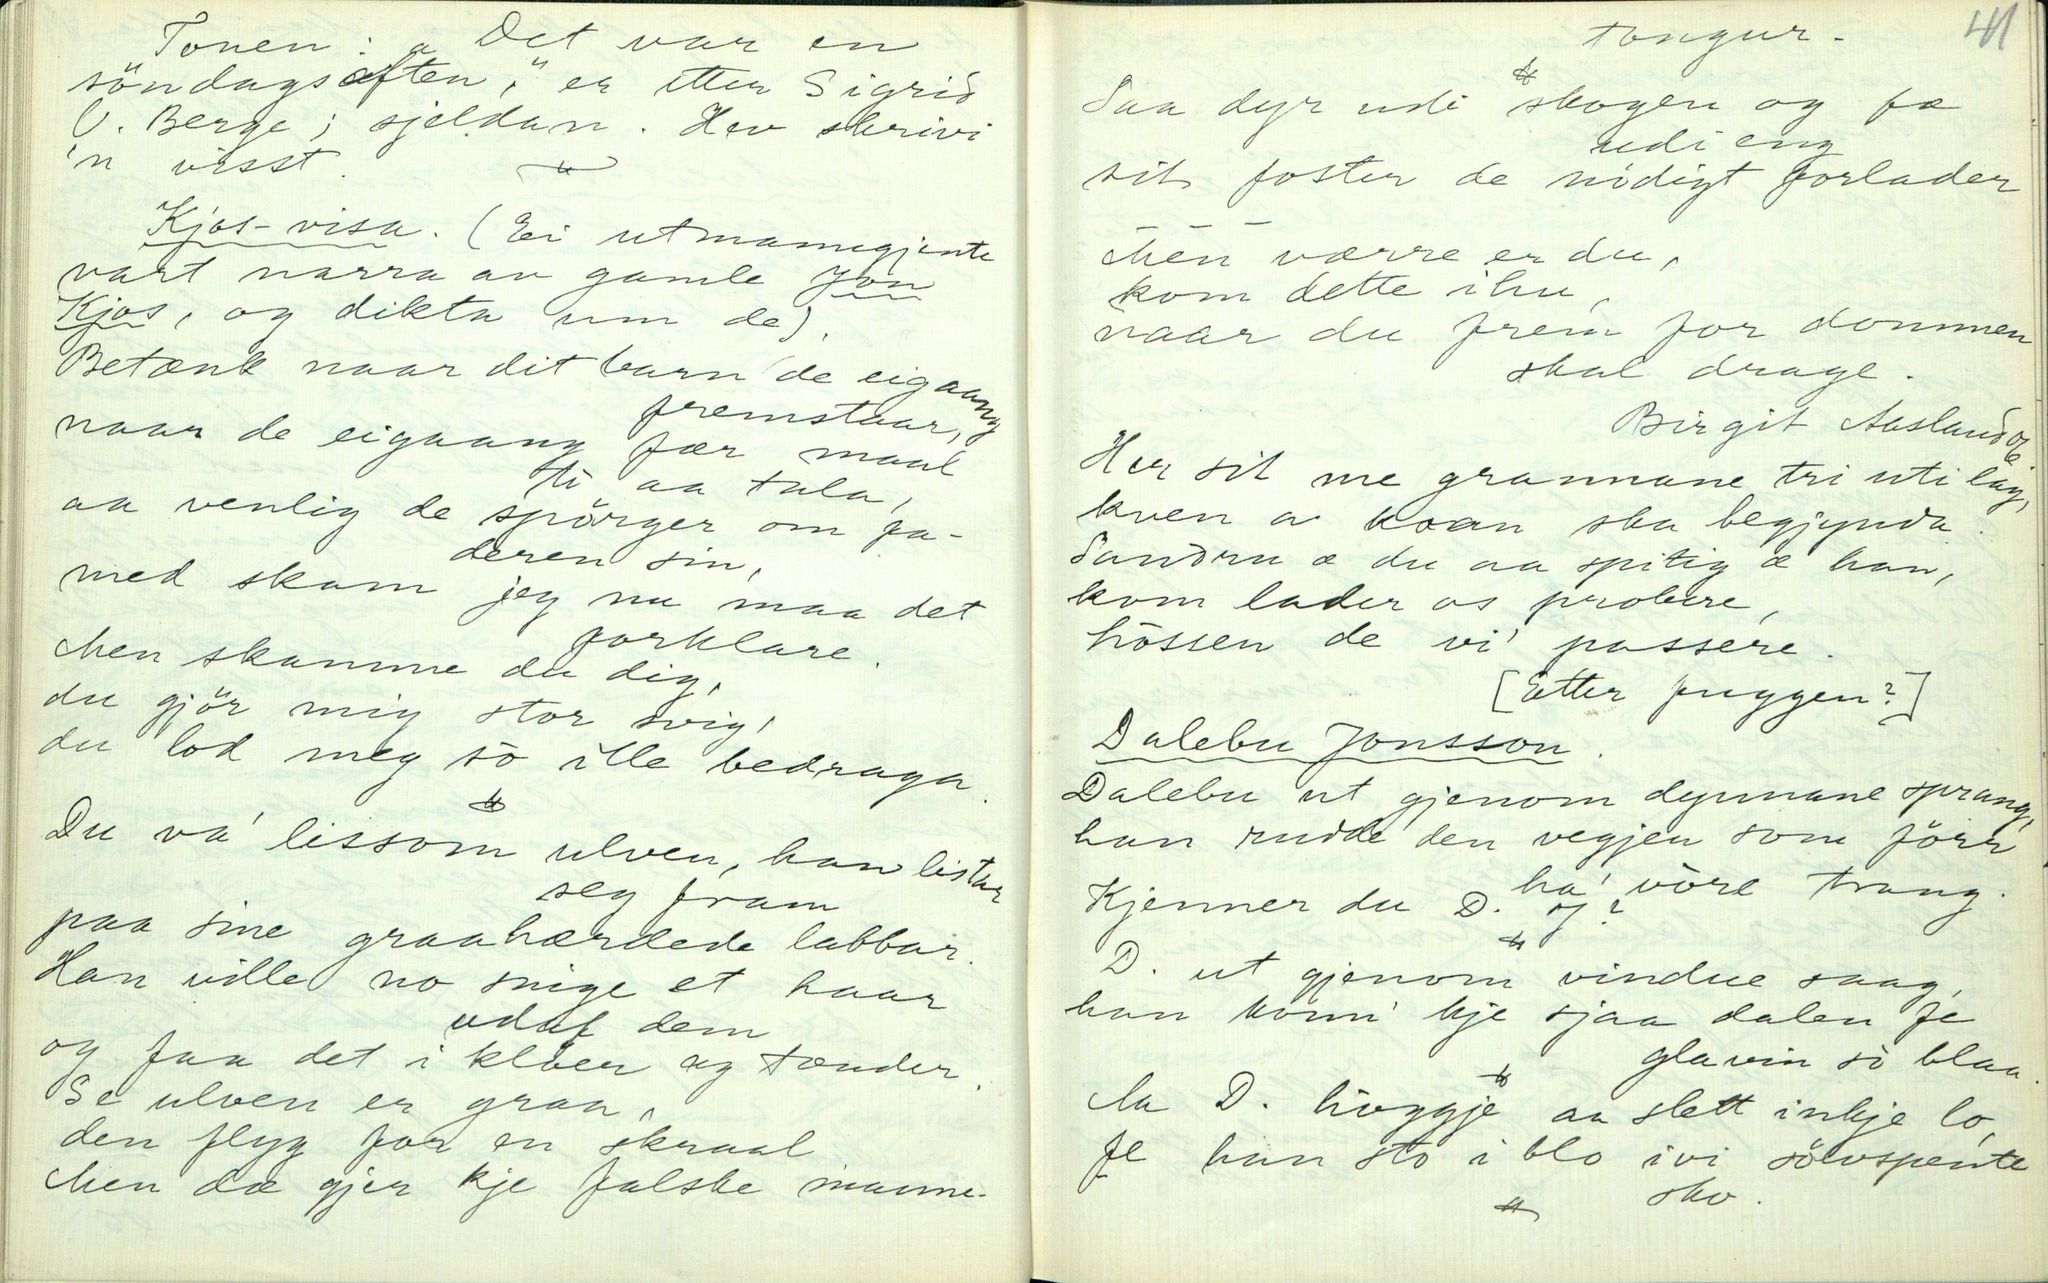 Tonen: „Det var en
söndagsaften," er etter Sigrid
O. Berge; sjeldan. Hev skrivi
'n visst.
Kjos-visa. (Ei utmannsgjente
vart narra av gamle Jon
Kjos, og dikta um de).
Betænk naar dit barn de eigaang
fremstaar,
naar de eigaang fær maal
ti aa tala,
aa venlig de spörger om fa-
deren sin,
med skam jeg nu maa det
forklare.
Men skamme du dig,
du gjör mig stor svig,
du lod meg so ille bedraga.
Du va' lissom ulven, han listar
seg fram
paa sine graahærdede labbar.
Han ville no snige et haar
udaf dem
og faa det i klöer og tænder.
Se ulven er graa,
den flyg for en skraal
Men dæ gjer kje falske manne-
41
tongur.
Saa dyr udi skogen og fæ
udi eng
sit foster de nödigt forlader
Men værre er du,
kom dette ihu,
naar du frem for dommen
skal drage.
Birgit Aasland
Her sit me grannane tri uti lag,
kven a koan ska begjynda.
Sandru æ du aa spitig æ han,
kom lader os probere,
hössen de vi' passere.
[Etter Fuggen?]
Dalebu Jonsson.
Dalebu ut gjenom dynnane sprang,
han rudde den vegjen som förr
ha' vöre trang.
Kjenner du D. J?
D. ut gjenom vindue saag,
han konn' kje sjaa dalen fe
glavin so blaa.
Aa D. hoggje aa slett inkje lo,
fe han sto i blo ivi sölvspente
sko.